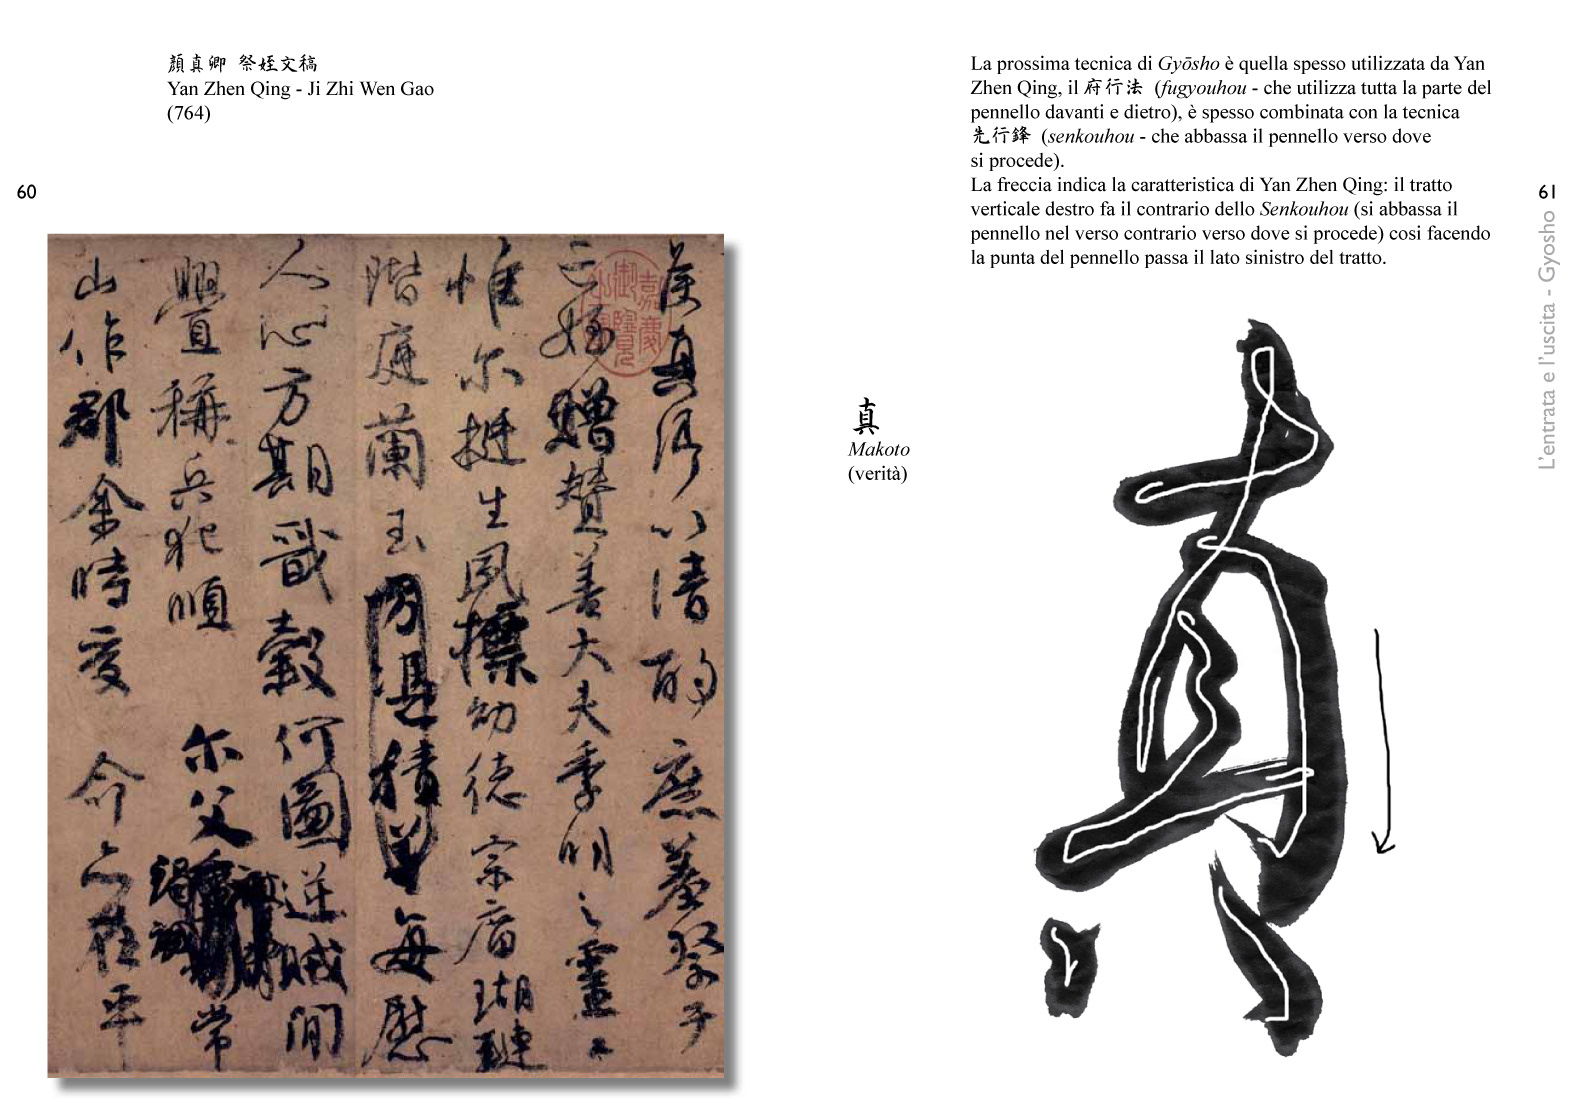 顔真卿 祭姪文稿
Yan Zhen Qing - Ji Zhi Wen Gao
(764)
60
侯真卿以清酌庶羞祭于
亡姪贈贊善大夫季明之靈曰
惟尔挺生夙標幼德宗廟瑚璉
階庭蘭玉方憑積善每慰
人心方期戩穀何圖逆賊閒
釁稱兵犯順 尔父竭誠 常
山作郡余時受 命亦在平
La prossima tecnica di Gyōsho è quella spesso utilizzata da Yan
Zhen Qing, il 府行法 (fugyouhou - che utilizza tutta la parte del
pennello davanti e dietro), è spesso combinata con la tecnica
先行鋒 (senkouhou - che abbassa il pennello verso dove
si procede).
La freccia indica la caratteristica di Yan Zhen Qing: il tratto
verticale destro fa il contrario dello Senkouhou (si abbassa il
pennello nel verso contrario verso dove si procede) cosi facendo
la punta del pennello passa il lato sinistro del tratto.
真
Makoto
(verità)
真
61
L'entrata e l'uscita - Gyosho